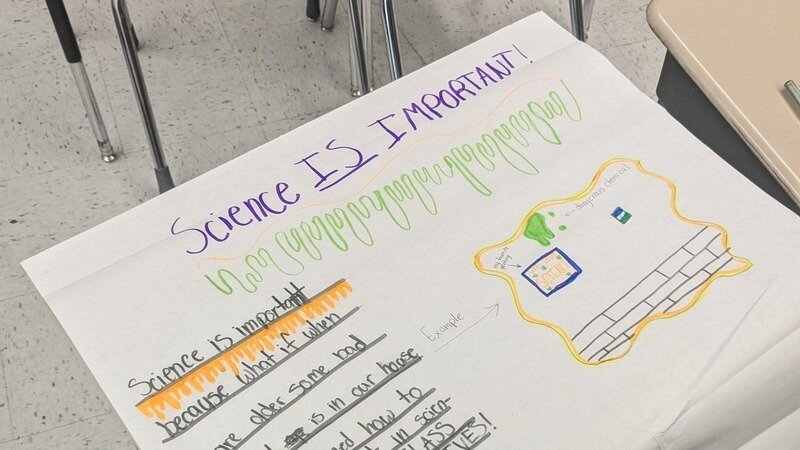 Science IS IMPORTANT!
Science is important
because what if when
are older some bad
is in our house
ed how to
t in scien-
LASS
VES!
Example
dangerous chemical
SCIENC